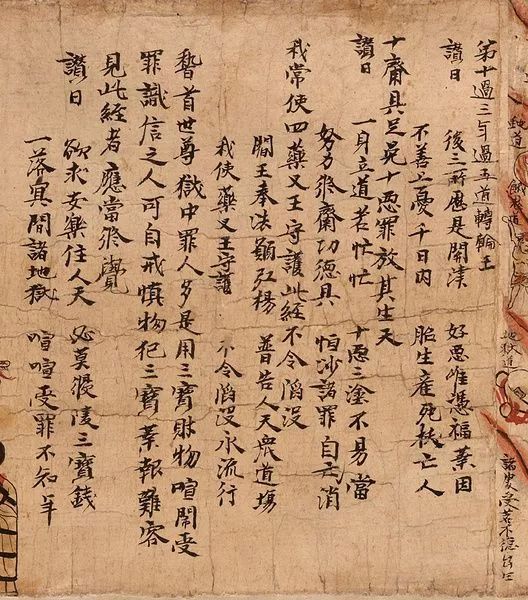 第十過三年過五道轉輪王
讚曰 後三所歷是關津 好惡唯憑福業因
不善上憂千日內 胎生產死拔亡人
十齋具足免十惡罪放其生天
讚曰 一身立道苦忙忙 十惡三塗不易當
努力修齋功德具 恒沙諸罪自亡消
我常使四藥叉王守護此經不令滔沒
閻王奉法願弘揚 普告人天衆道場
我使藥叉王守護 不令滔沒永流行
稽首世尊獄中罪人多是用三寶財物喧鬧受
罪識信之人可自戒慎物犯三寶業報難容
見此經者應當修覺
讚曰 欲求安樂住人天 必莫浸陵三寶錢
一落冥間諸地獄 喧喧受罪不知年
地獄道